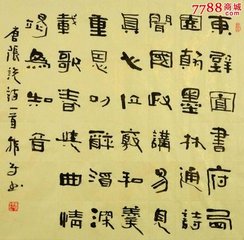 7788商城
.com
東壁圖書府西
園翰墨林誦詩
聞國政講易見
天心位竊和羹
重恩叨醉酒深
載歌春興曲情
竭為知音
唐張說詩一首